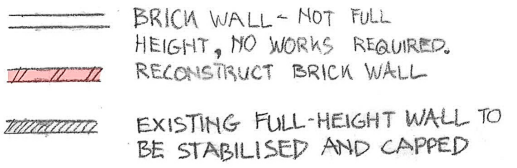 BRICK WALL - NOT FULL
HEIGHT, NO WORKS REQUIRED.
RECONSTRUCT BRICK WALL
EXISTING FULL-HEIGHT WALL TO
BE STABILISED AND CAPPED